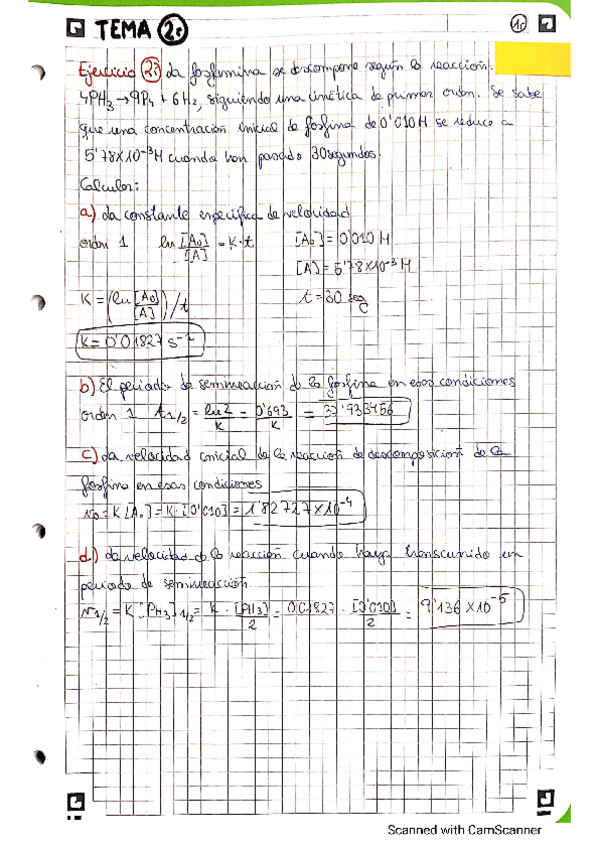 TEMA 2.
1c
Ejercicio 23 La fosfamina se descompone según la reacción:
4PH3 → 9P4 + 6H2, siguiendo una cinética de primer orden. Se sabe
que una concentración inicial de fosfina de 0'010M se reduce a
5'78x10-3M cuando han pasado 30segundos.
Calcular:
a) La constante específica de velocidad
orden 1 ln [A0]/[A] = K·t [A0] = 0'010 M
[A] = 5'78x10-3 M
K = (ln [A0]/[A]) / t t = 30 seg
K = 0'01827 s-1
b) El periodo de semirreacción de la fosfina en esas condiciones
orden 1 t1/2 = ln2/K = 0'693/K = 37'933456
c) La velocidad inicial de la reacción de descomposición de la
fosfina en esas condiciones
v0 = K[A0] = K·[0'010] = 1'82727x10-4
d.) La velocidad de la reacción cuando haya transcurrido un
periodo de semirreacción
v1/2 = K·[PH3]1/2 = K·[PH3]/2 = 0'01827·[0'010]/2 = 9'136x10-5
Scanned with CamScanner